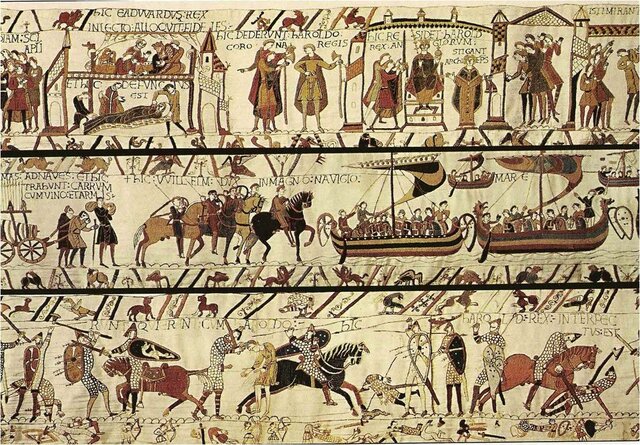 HIC EADWARDUS:REX
IN LECTO:ALLOQUIT:FIDELES:
ET HIC:DEFUNCTUS
EST
HIC DEDERUNT:HAROLDO:
CORONA REGIS
HIC RE SIDET:HAROLD
REX:AN GLORUM:
STIGANT
ARCHIEPS
ISTI MIRANT
AD NAVES:ET HIC
TRAHUNT:CARRUM
CUM VINO:ET ARMIS:
HIC:WILLELM:DUX
IN MAGNO:NAVIGIO:
MARE
HIC
HAROLD:REX:INTERFEC
TUS:EST